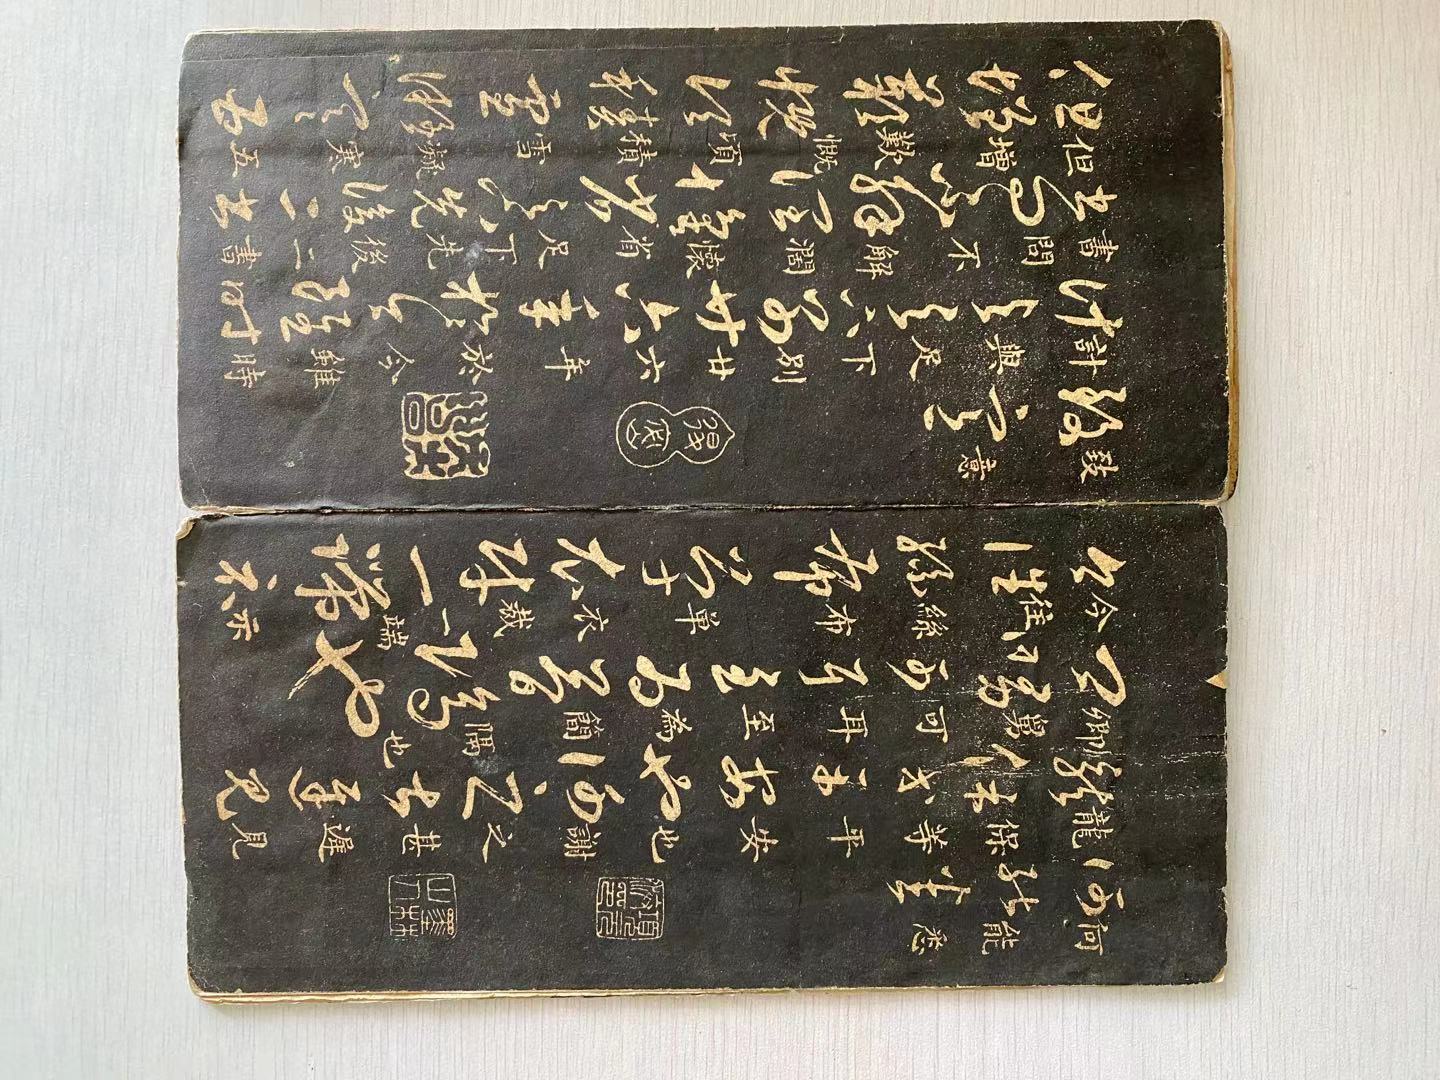 何能悉
龍保等平安也謝之甚遲見
卿舅可耳至為簡隔也
今往絲布單衣裁一端示
致意
計與足下別廿六年於今雖時
書問不解闊懷省足下先後二書
但增歎慨頃積雪凝寒五